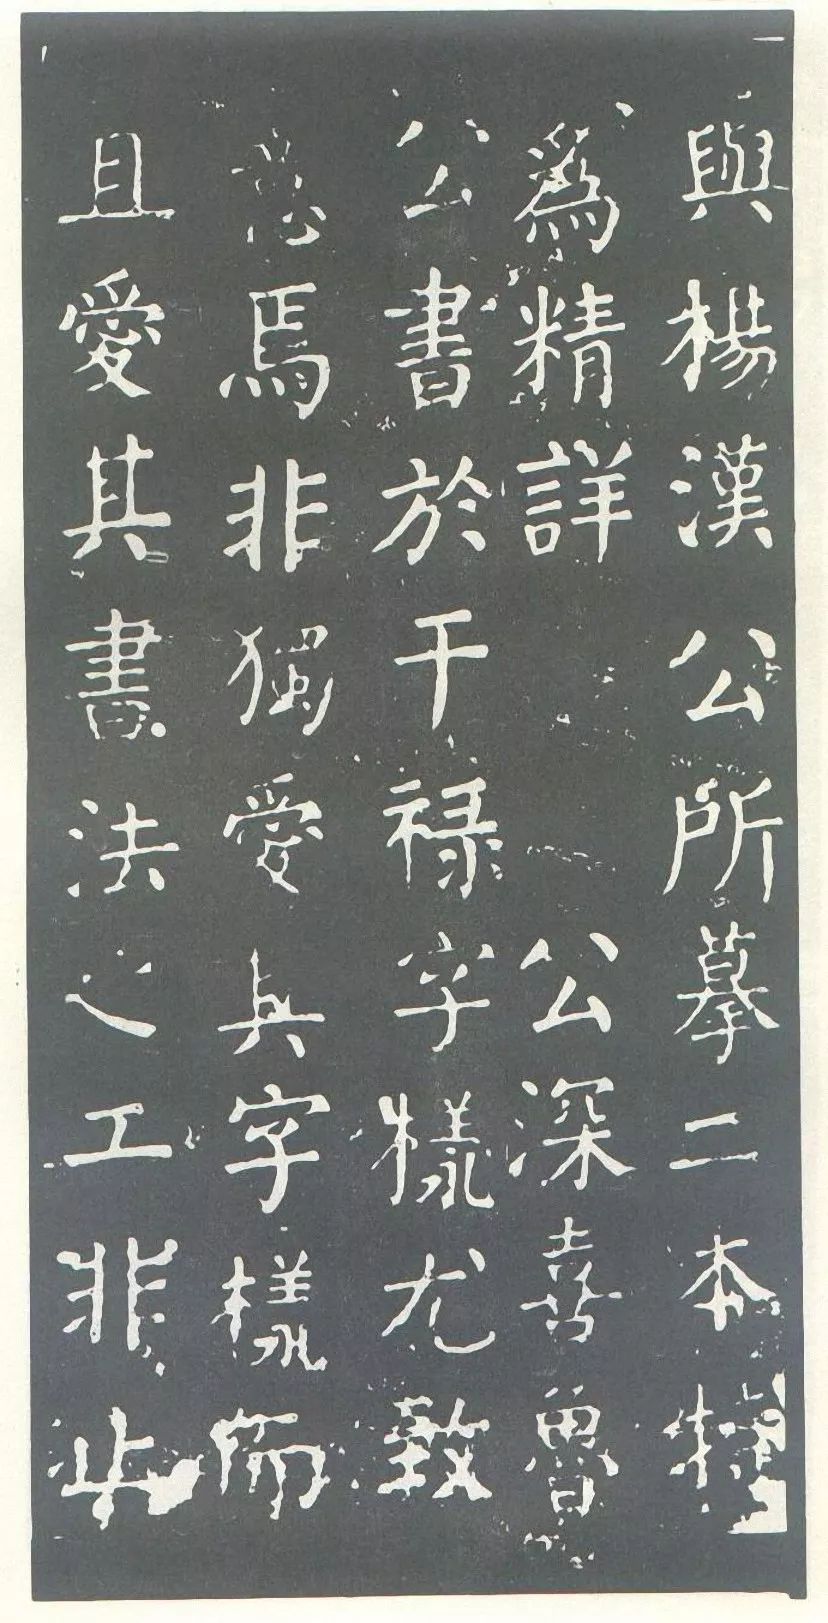 與楊漢公所摹二本特
為精詳公深喜魯
公書於干禄字樣尤致
意焉非獨愛其字樣而
且愛其書法之工非止